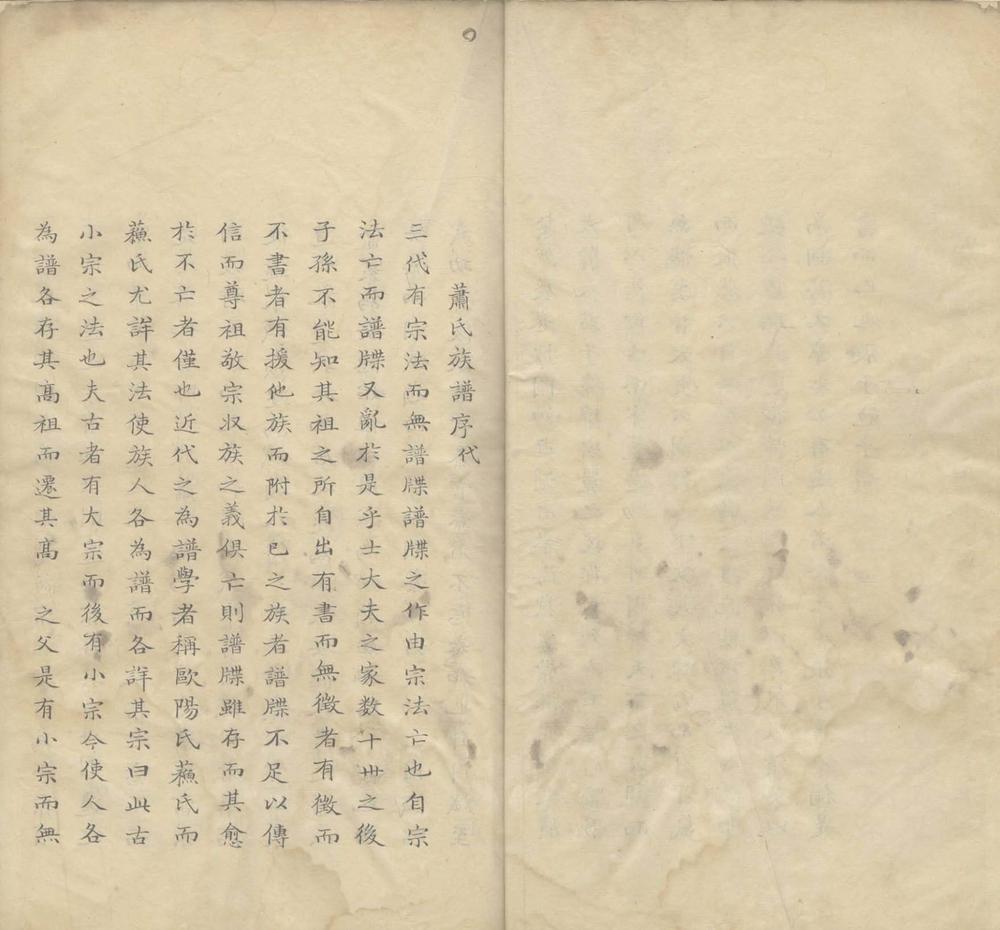 蕭氏族譜序代
三代有宗法而無譜牒譜牒之作由宗法亡也自宗
法亡而譜牒又亂於是乎士大夫之家数十丗之後
子孫不能知其祖之所自出有書而無徵者有徵而
不書者有援他族而附於已之族者譜牒不足以傳
信而尊祖敬宗収族之義俱亡則譜牒雖存而其愈
於不亡者僅也近代之為譜學者稱歐陽氏蘓氏而
蘓氏尤詳其法使族人各為譜而各詳其宗曰此古
小宗之法也夫古者有大宗而後有小宗今使人各
為譜各存其高祖而遷其高祖之父是有小宗而無